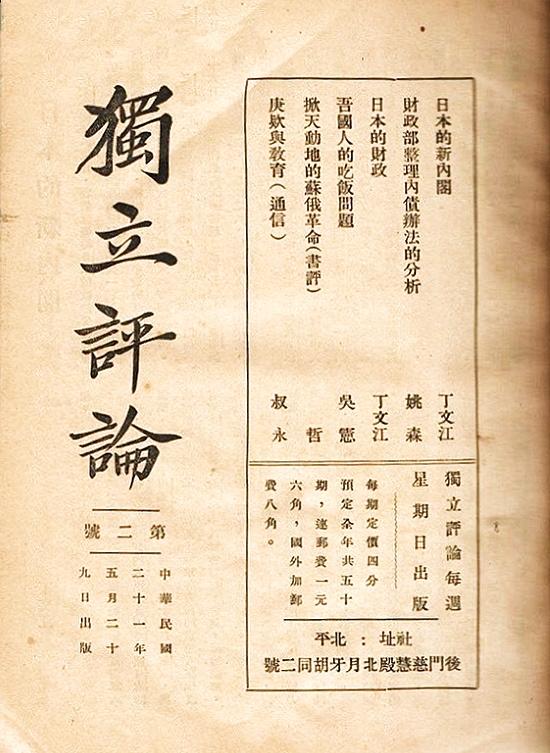 日本的新內閣 丁文江
財政部整理內債辦法的分析 姚森
日本的財政 丁文江
吾國人的吃飯問題 吳憲
掀天動地的蘇俄革命（書評） 哲
庚欵與敎育（通信） 叔永
獨立評論每週
星期日出版
每期定價四分
預定全年共五十
期，連郵費一元
六角，國外加郵
費八角。
社址：北平
後門慈慧殿北月牙胡同二號
獨立評論
第二號
中華民國
二十一年
五月二十
九日出版